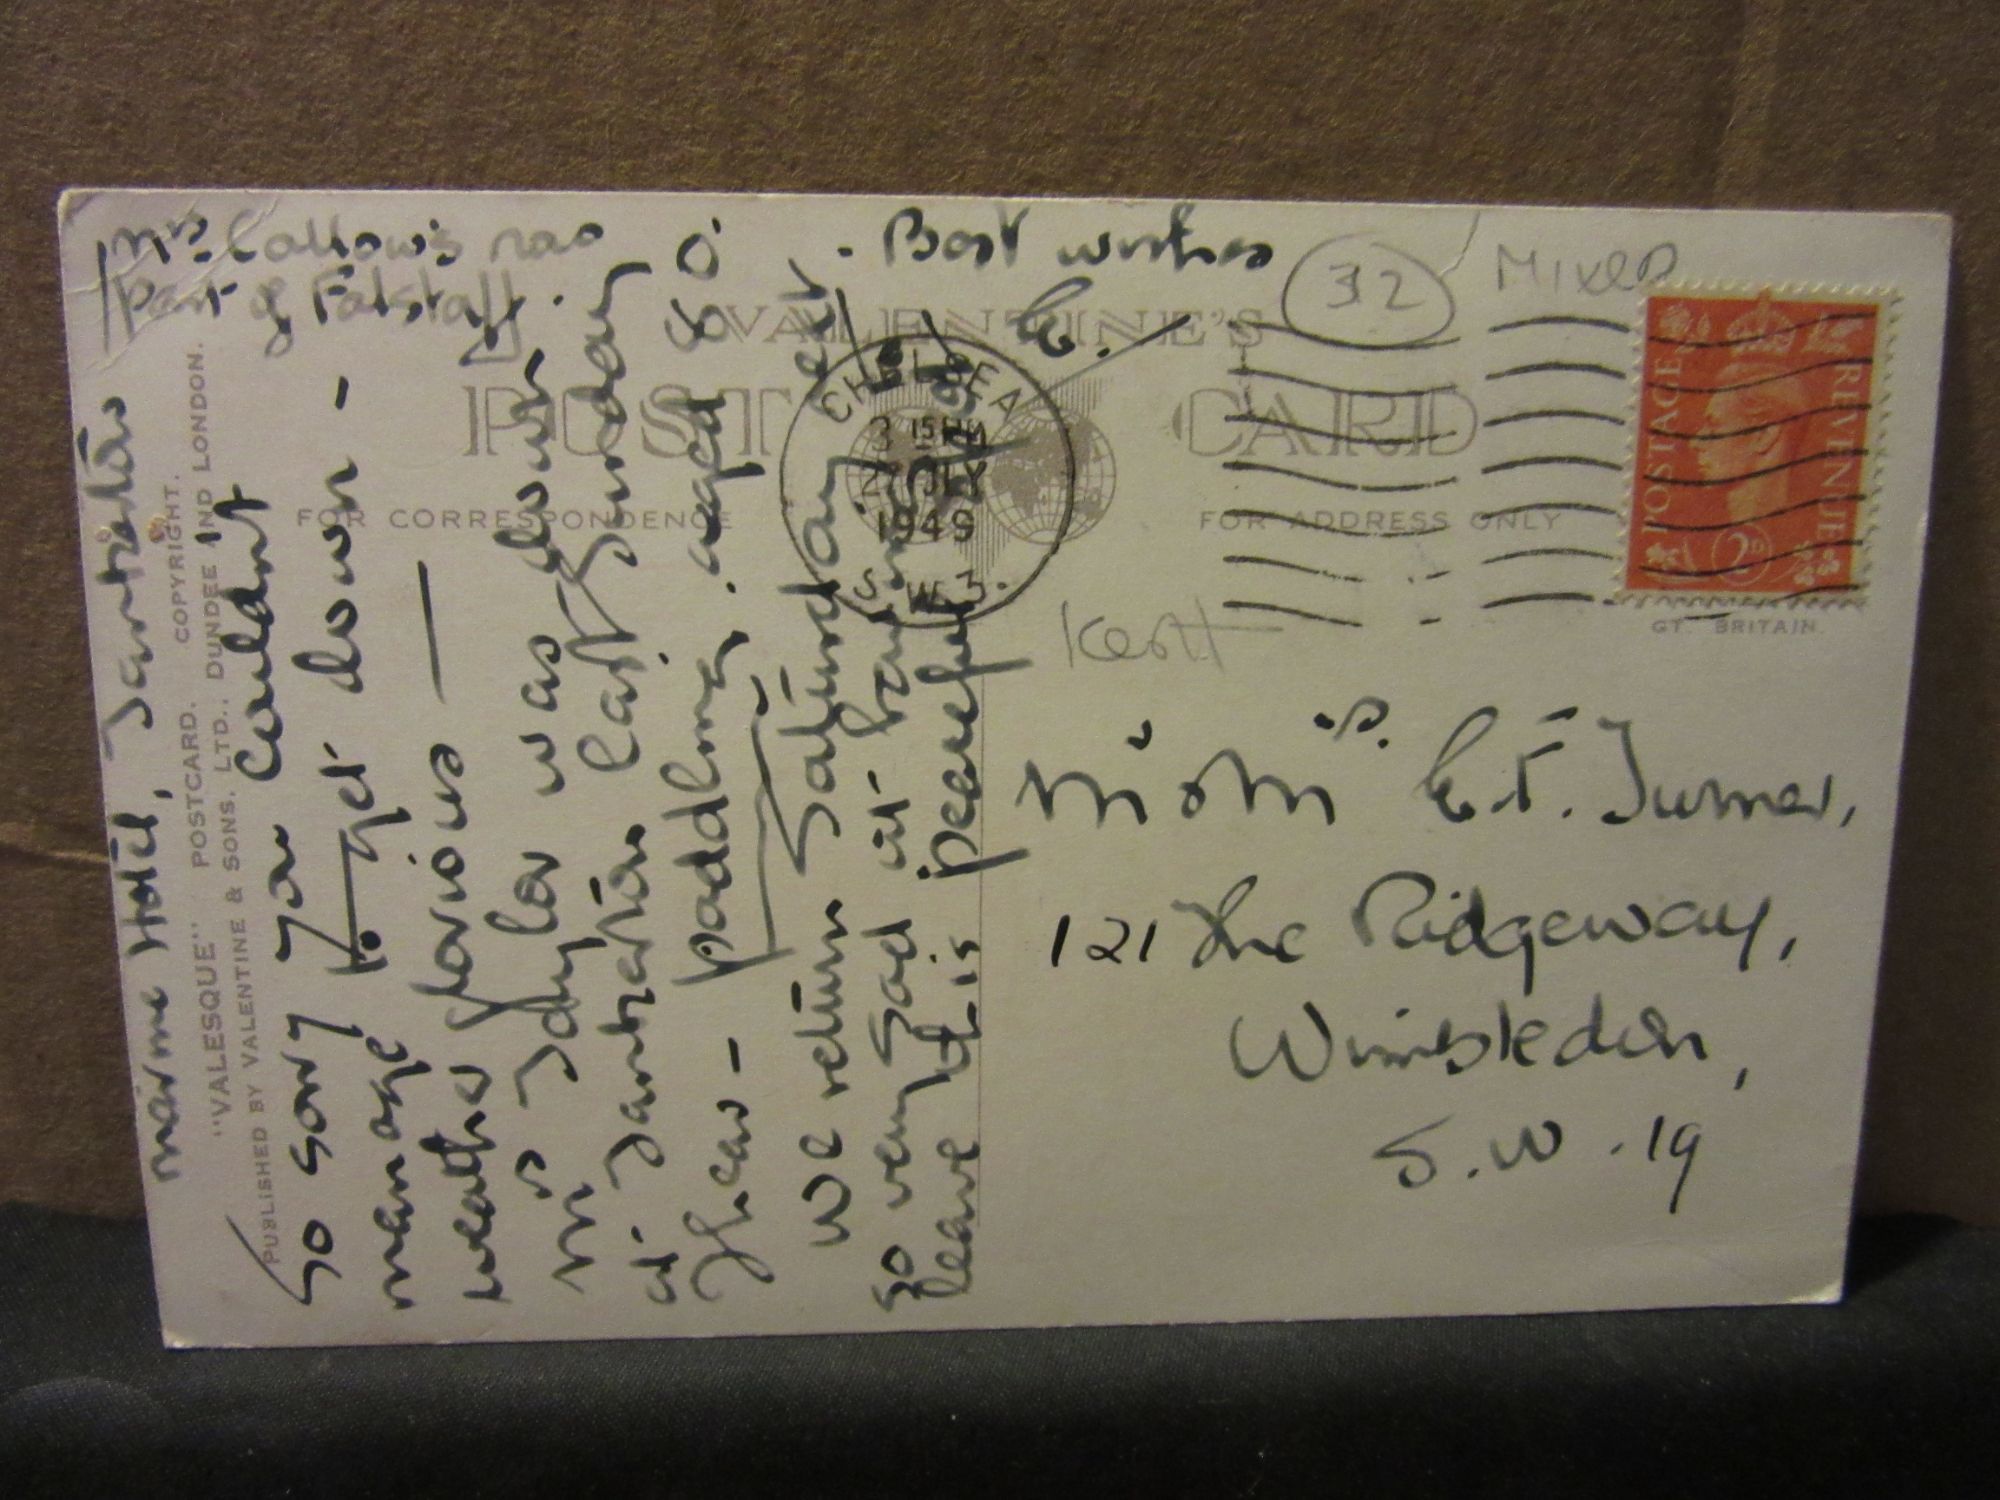 Marine Hotel, Tankerton
So sorry you couldnt
manage to get down -
weather glorious —
Mrs Taylor was down
at Tankerton last Sunday
Shew - paddling. aged 80.
We return Saturday
so very sad at having to
leave it is peaceful
Best wishes
E.
Mrs. Callow's
part of Falstaff.
"VALESQUE" POSTCARD. COPYRIGHT.
PUBLISHED BY VALENTINE & SONS. LTD., DUNDEE AND LONDON.
VALENTINE'S
POST CARD
FOR CORRESPONDENCE
FOR ADDRESS ONLY
CHELSEA
3 15 PM
JLY
1949
S.W.3.
32
MIXED
Kent
POSTAGE REVENUE
2D
GT. BRITAIN.
Mr & Mrs. E. F. Turner,
121 The Ridgeway,
Wimbledon,
S.W.19